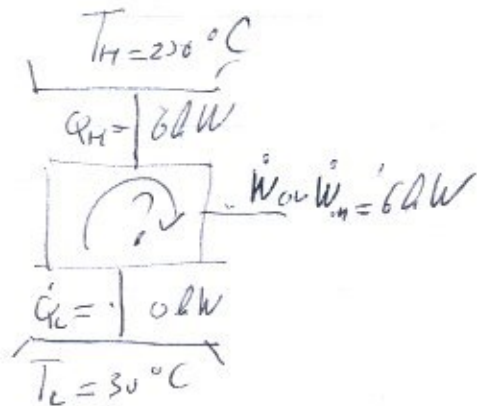 T_H = 250 °C
Q_H = 6 kW
?
Ẇ or Ẇ_in = 6 kW
Q̇_L = 0 kW
T_L = 30 °C